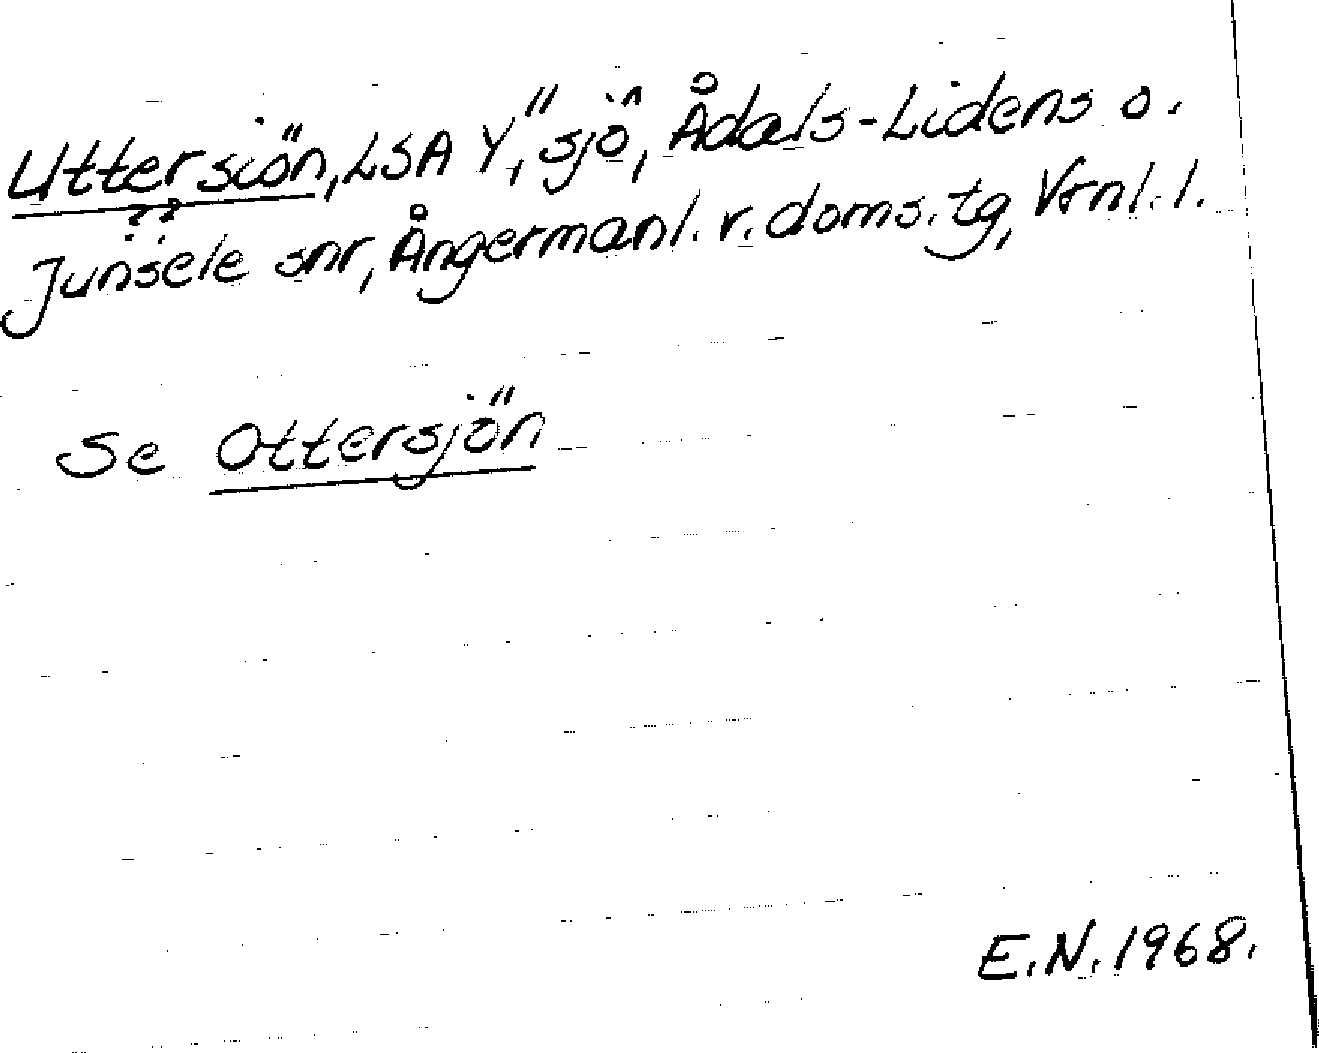 Uttersiön, LSA Y", sjö, Ådals-Lidens o.
Junsele snr, Ångermanl. v. doms. tg, Vrnl. l.
Se Ottersjön
E.N. 1968.